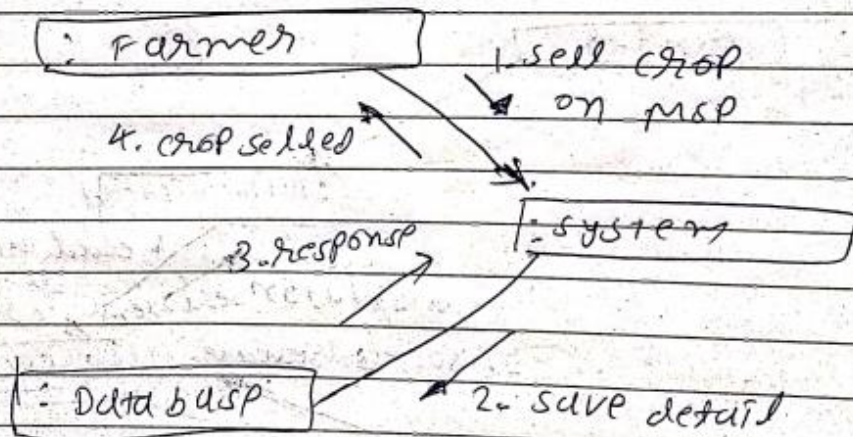 : Farmer
1. sell crop
on MSP
4. crop selled
: system
3. response
: Database
2. save detail